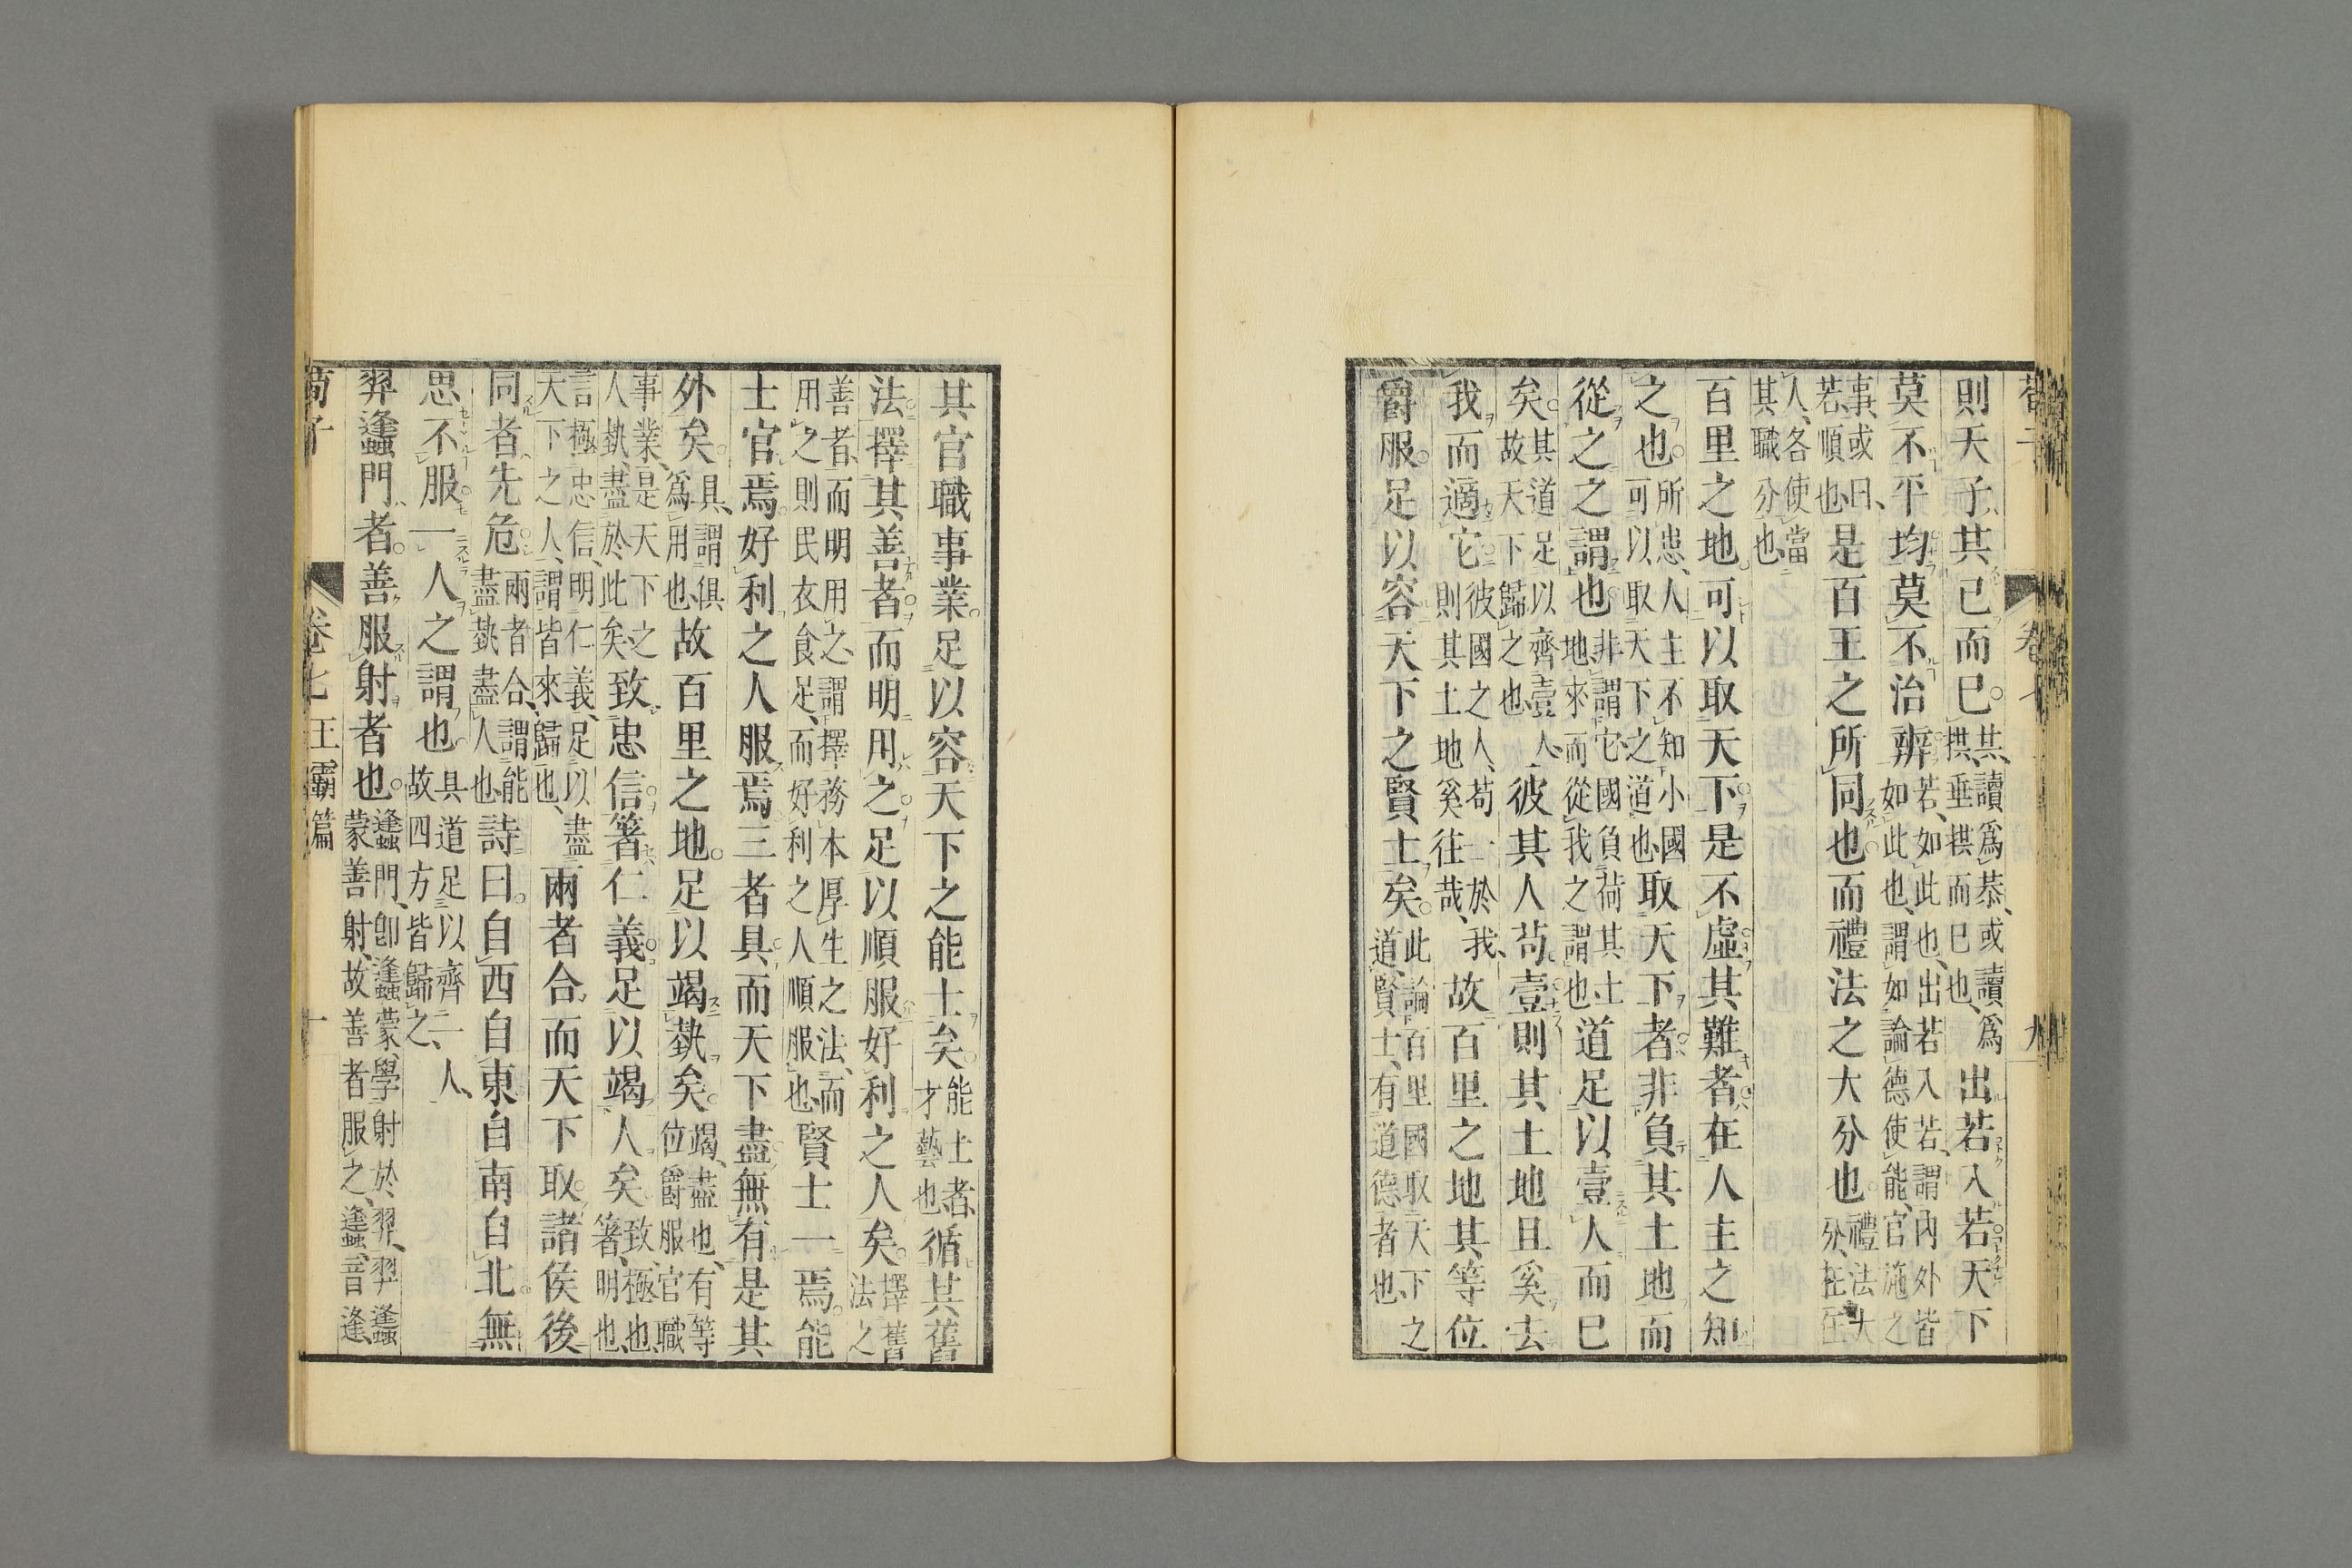 則天子共己而已共讀爲恭或讀爲拱垂拱而已也出若入若天下
莫不平均莫不治辨若如此也出若入若謂内外皆如此也謂如論德使能官施之
事或曰若順也是百王之所同也而禮法之大分也禮法大分在
人各使當其職分也
百里之地可以取天下是不虛其難者在人主之知
之也所患人主不知小國可以取天下之道也取天下者非負其土地而
從之之謂也非謂它國負荷其土地來而從我之謂也道足以壹人而已
矣其道足以齊壹人故天下歸之也彼其人苟壹則其土地且奚去
我而適它彼國之人苟一於我則其土地奚往哉故百里之地其等位
爵服足以容天下之賢士矣此論百里國取天下之道賢士有道德者也
其官職事業足以容天下之能士矣能士者才藝也循其舊
法擇其善者而明用之足以順服好利之人矣擇舊法之
善者而明用之謂擇務本厚生之法而用之則民衣食足而好利之人順服也賢士一焉能
士官焉好利之人服焉三者具而天下盡無有是其
外矣具謂俱爲用也故百里之地足以竭埶矣竭盡也有等位爵服官職
事業是天下之人埶盡於此矣致忠信箸仁義足以竭人矣致極也箸明也
言極忠信明仁義足以盡天下之人謂皆來歸也兩者合而天下取諸侯後
同者先危兩者合謂能盡埶盡人也詩曰自西自東自南自北無
思不服一人之謂也具道足以齊一人故四方皆歸之
羿蠭門者善服射者也蠭門卽蠭蒙學射於羿羿蠭蒙善射故善者服之蠭音逢
荀子 卷七 王霸篇 十